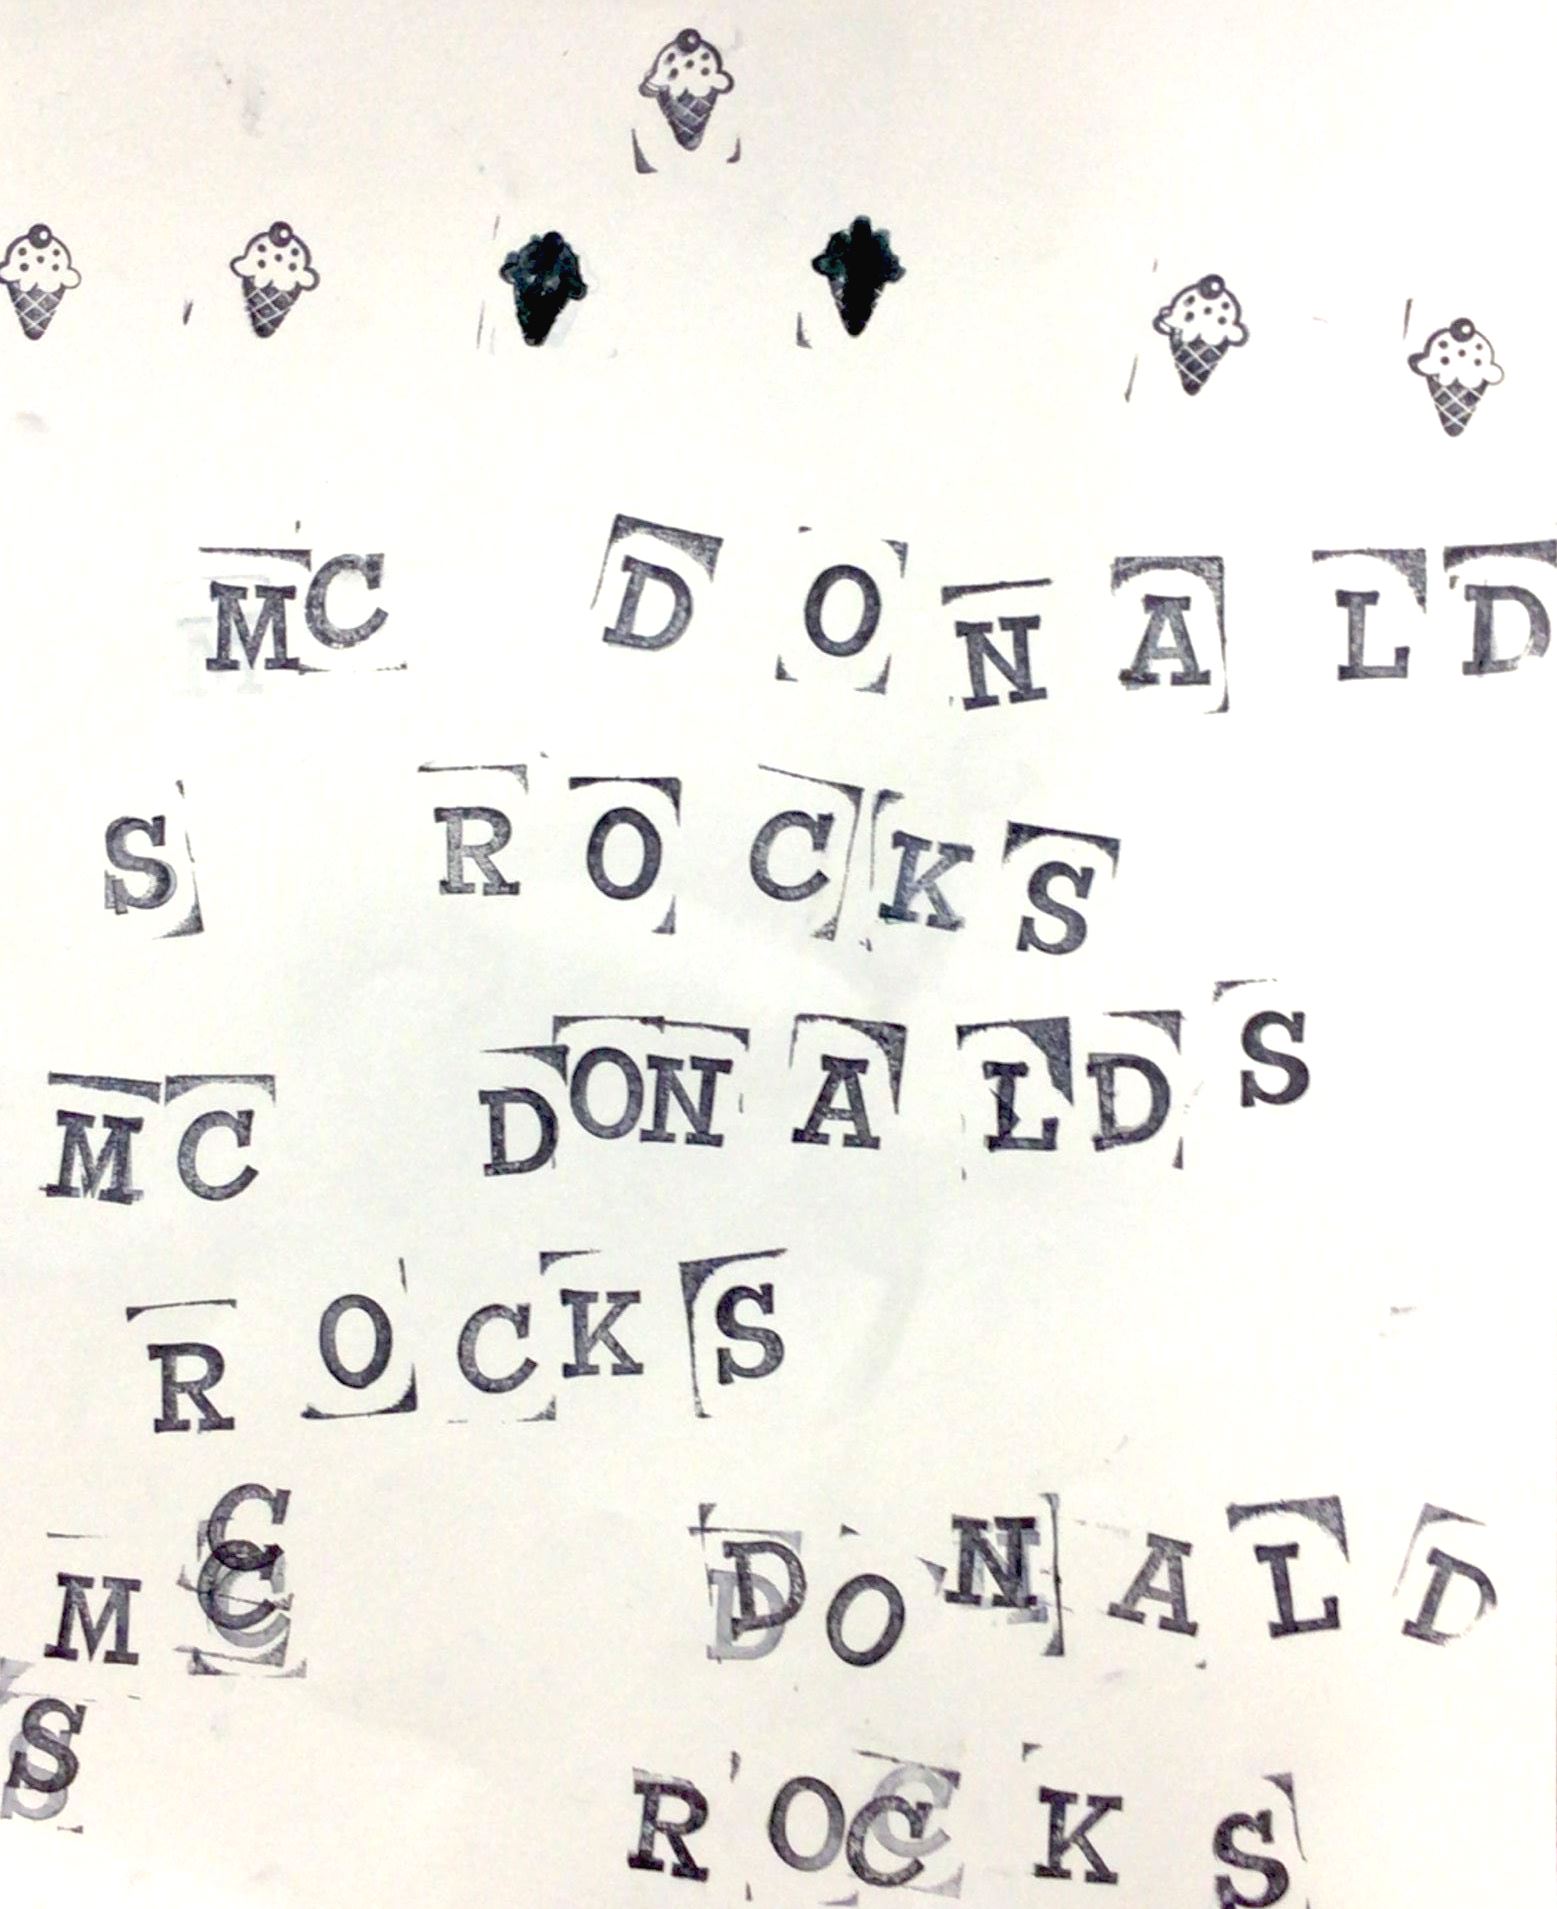 MC DONALD
S ROCKS
MC DONALDS
ROCKS
MC DONALD
S ROCKS